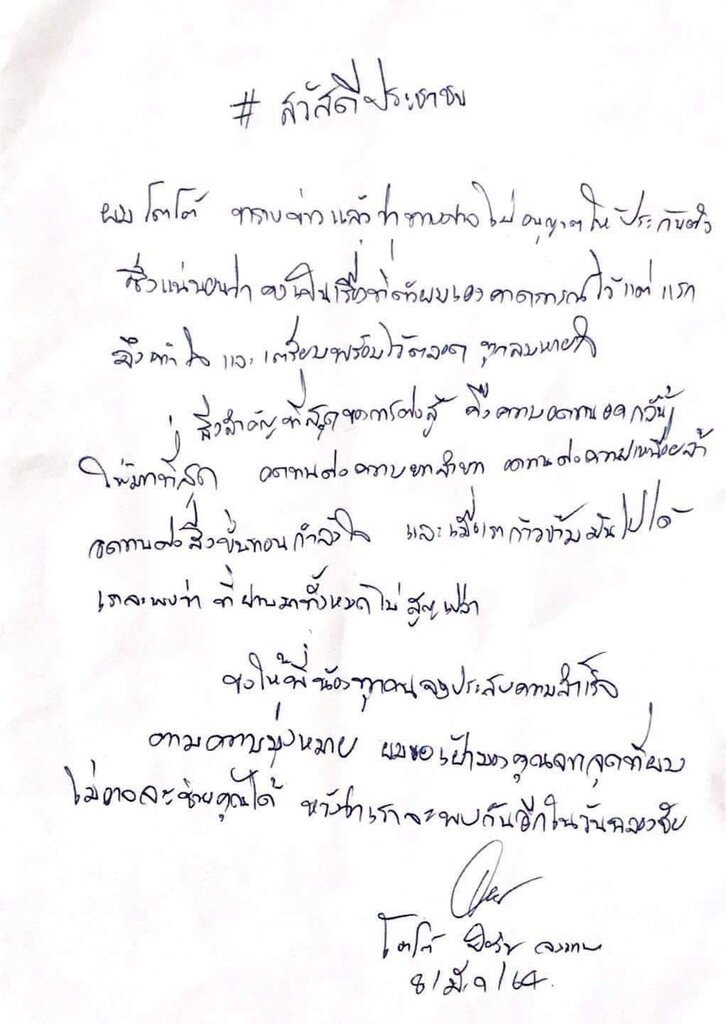 # สวัสดีประชาชน
ผม โตโต้ ทราบข่าวแล้วว่าทางศาลไม่อนุญาตให้ประกันตัว
ซึ่งแน่นอนว่า คงเป็นเรื่องที่ตัวผมเองคาดการณ์ไว้แต่แรก
จึงทำใจ และ เตรียมพร้อมไว้ตลอด ทุกลมหายใจ
สิ่งสำคัญที่สุดของการต่อสู้ คือความอดทนอดกลั้น
ให้มากที่สุด อดทนต่อความยากลำบาก อดทนต่อความเหนื่อยล้า
อดทนต่อสิ่งบั่นทอนกำลังใจ และเมื่อเราก้าวข้ามมันไปได้
เราจะพบว่า ที่ผ่านมาทั้งหมดไม่สูญเปล่า
ขอให้พี่น้องทุกคนจงประสบความสำเร็จ
ตามความมุ่งหมาย ผมขอเฝ้ามองคุณจากจุดที่ผม
ไม่อาจจะช่วยคุณได้ หวังว่าเราจะพบกันอีกในวันฉลองชัย
โตโต้ ปิยรัฐ จงเทพ
8/มี.ค/64.